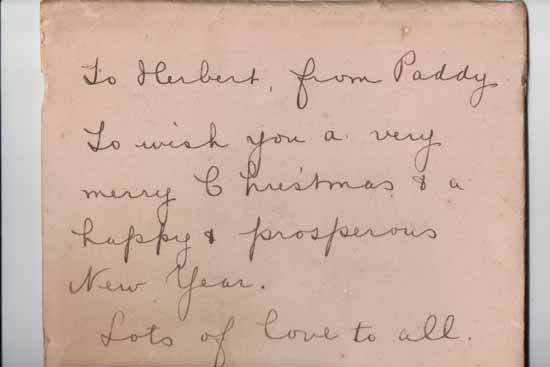 To Herbert, from Paddy
To wish you a very
merry Christmas & a
happy & prosperous
New Year.
Lots of love to all.